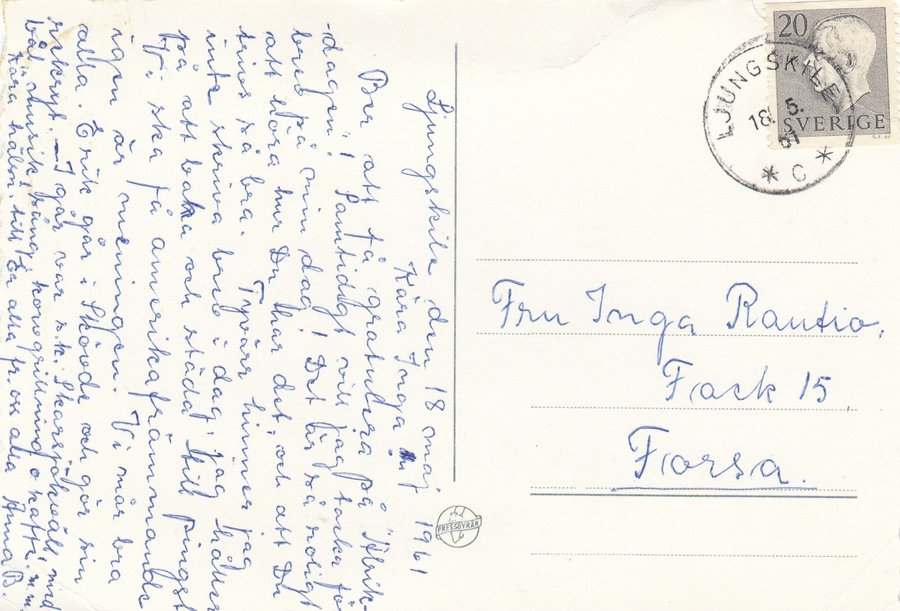 Ljungskile den 18 maj 1961
Kära Inga!
Ber att få gratulera på "Alvik-
dagen"! Samtidigt vill jag tacka för
brev på min dag! Det är så roligt
att höra hur Du har det, och att Du
trivs så bra. Tyvärr hinner jag
inte skriva brev i dag. Jag håller
på att baka och städa till Pingst
ty vi ska få amerikafrämmande
igen är meningen. Vi mår bra
alla. Erik går i Skövde och gör sin
rekryt. – I går var s.k. Skarsjökväll med
bål, musik, sång, korvgrillning o kaffe m.m.
Kära häln. till Er alla fr. oss alla Anna B.
20
SVERIGE
LJUNGSKILE
18. 5.
61
* C *
Fru Inga Rautio.
Fack 15.
Forsa.
PRESSBYRÅN